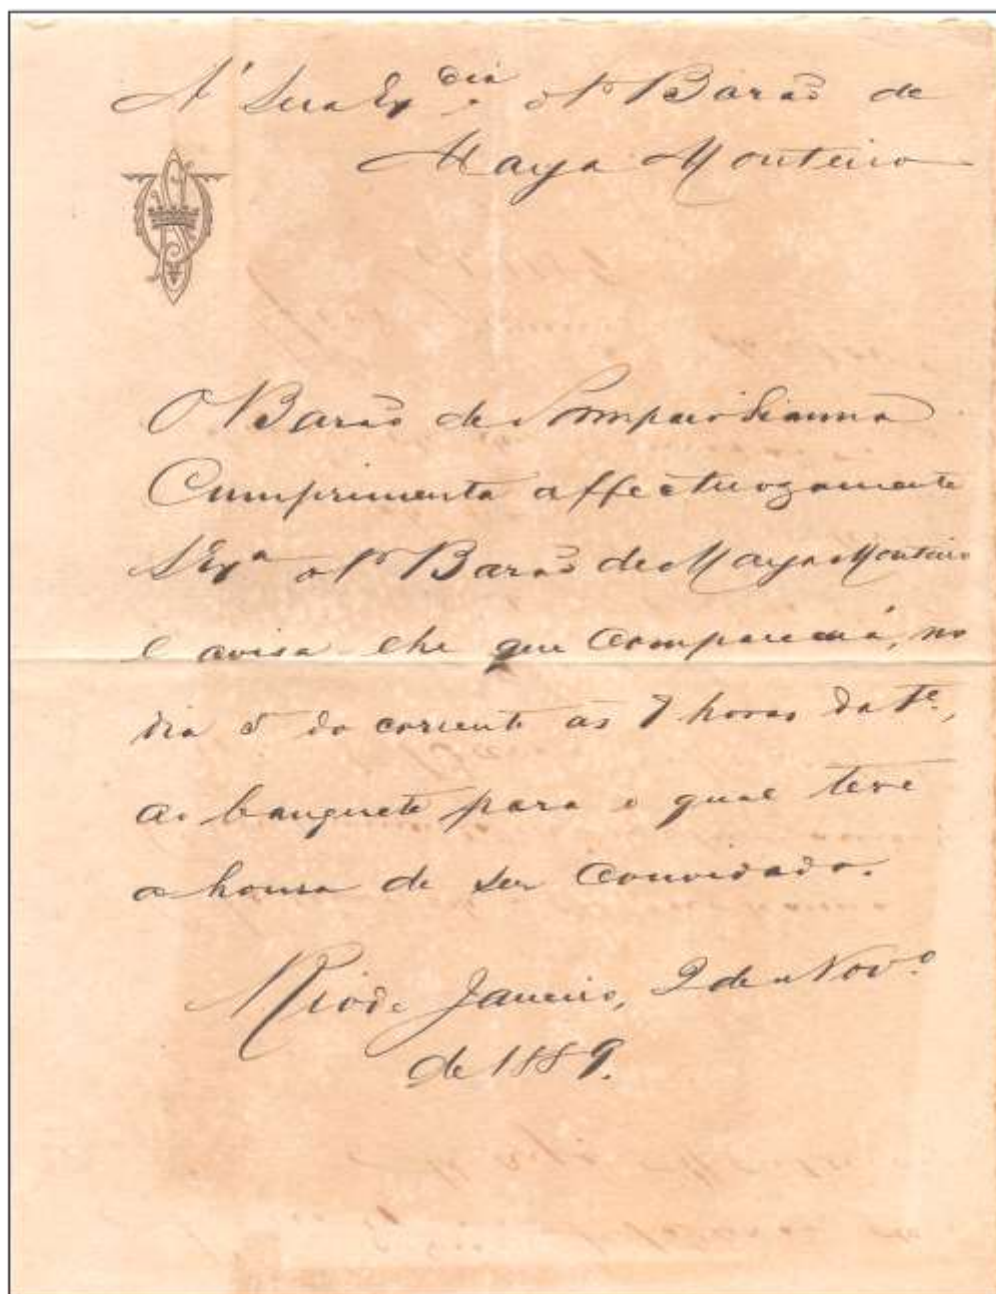 A' Sua Ex.cia o Sr Barão de
Maya Monteiro
O Barão de Sampaio Vianna
Cumprimenta affectuozamente
S Exª o Sr Barão de Maya Monteiro
e avisa lhe que comparecerá, no
dia 5 do corrente as 7 horas da Te.,
ao banquete para o qual teve
a honra de ser Convidado.
Rio de Janeiro, 2 de Nov.º
de 1889.